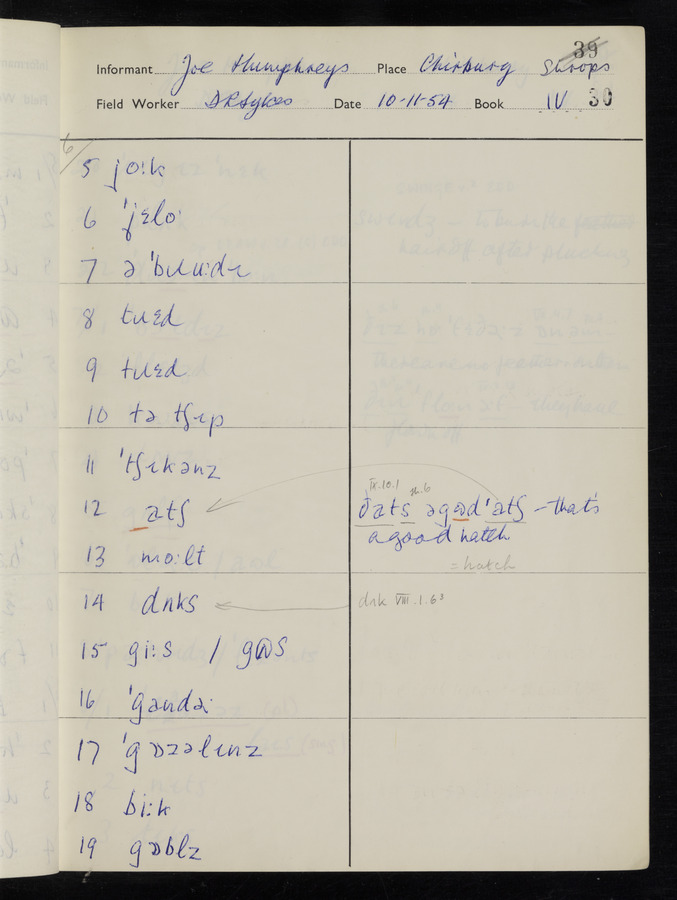 39
Informant Joe Humphreys Place Chirbury Shrops
Field Worker D R Sykes Date 10-11-54 Book IV 30
6/
5 jo:k
6 'jɛlo·
7 ə 'bɹu:dɪ
8 tɹɛd
9 tɹɛd
10 tə tʃɪp
11 'tʃɪkənz
12 atʃ
IX.10.1
ðats əgɷd 'atʃ – that's
a good hatch
= hatch
13 mo:lt
14 dɷks
dɷk VIII.1.6
15 gi:s / gɷs
16 'gandə
17 'gɒzəlɪnz
18 bi:k
19 gɒblz